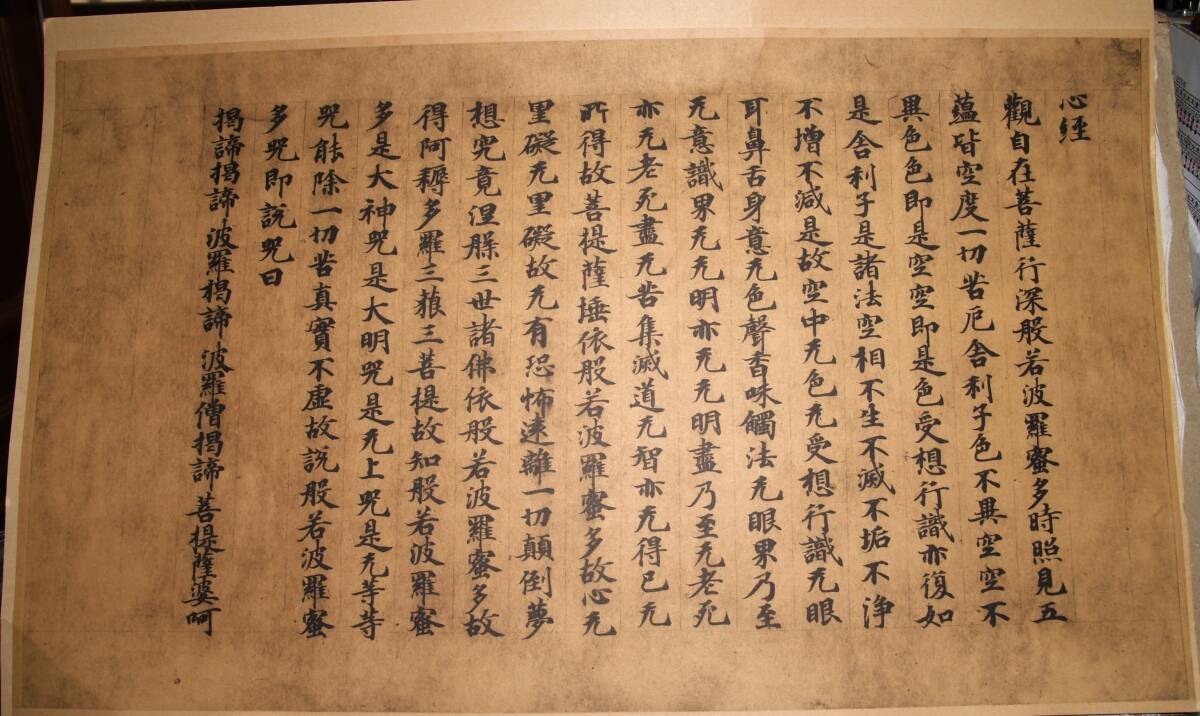 心経
觀自在菩薩行深般若波羅蜜多時照見五
蘊皆空度一切苦厄舎利子色不異空空不
異色色即是空空即是色受想行識亦復如
是舎利子是諸法空相不生不滅不垢不浄
不増不減是故空中无色无受想行識无眼
耳鼻舌身意无色聲香味觸法无眼界乃至
无意識界无无明亦无无明盡乃至无老死
亦无老死盡无苦集滅道无智亦无得已无
所得故菩提薩埵依般若波羅蜜多故心无
罣礙无罣礙故无有恐怖遠離一切顛倒夢
想究竟涅槃三世諸佛依般若波羅蜜多故
得阿耨多羅三藐三菩提故知般若波羅蜜
多是大神咒是大明咒是无上咒是无等等
咒能除一切苦真實不虚故説般若波羅蜜
多咒即説咒曰
揭諦揭諦 波羅揭諦 波羅僧揭諦 菩提薩婆呵